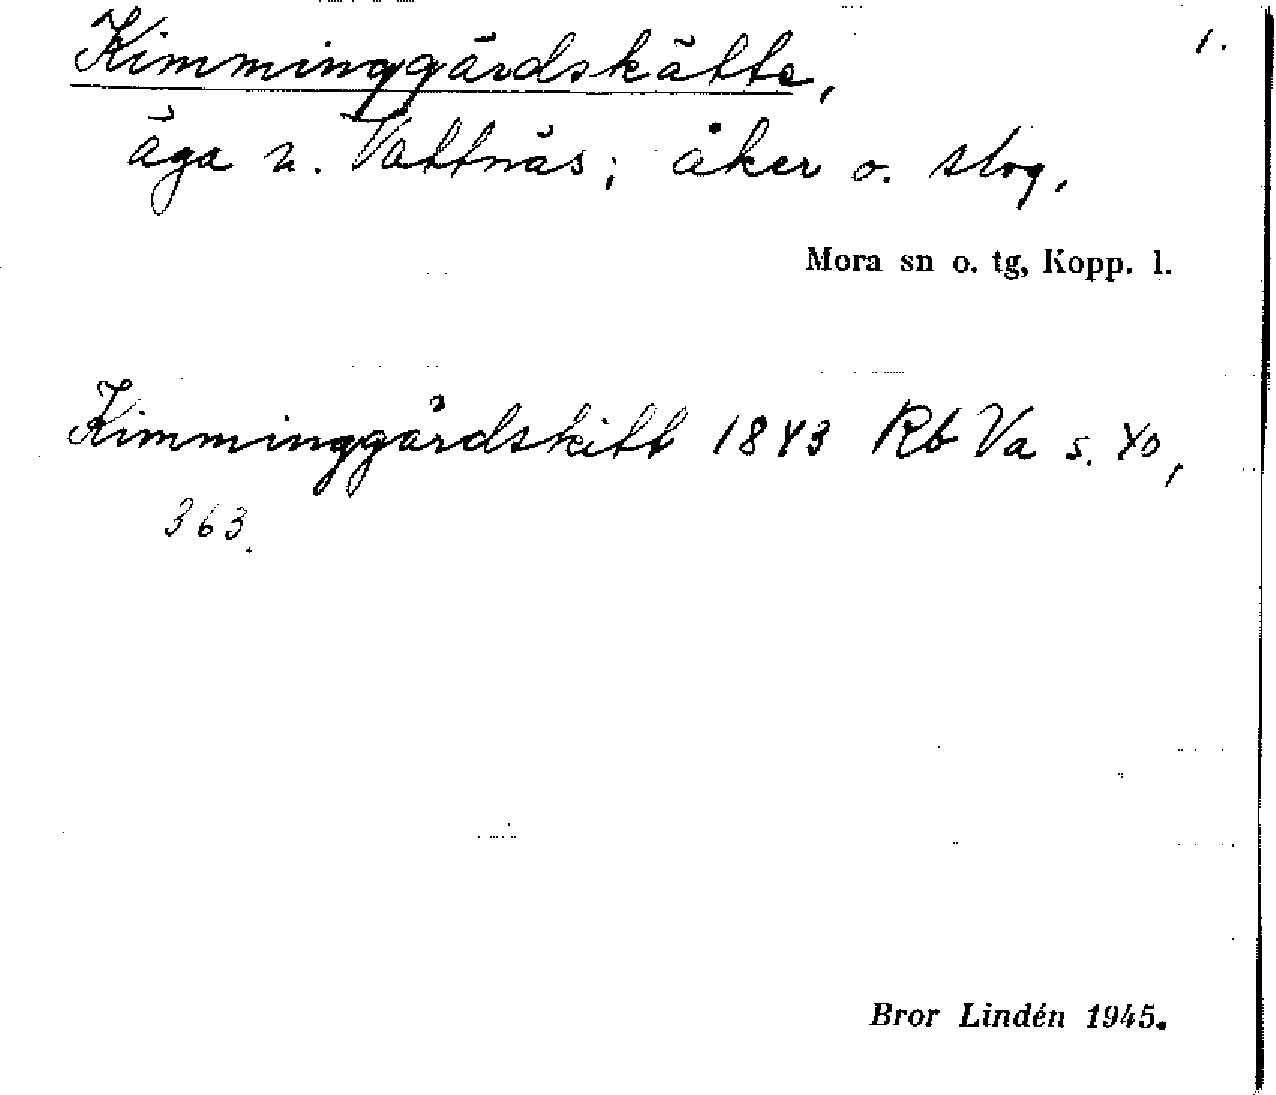 Kimminggärdskätte, 1.
äga n. Vattnäs; åker o. slog.
Mora sn o. tg, Kopp. l.
Kimminggårdskitt 1843 Rb Va s. 40,
363.
Bror Lindén 1945.